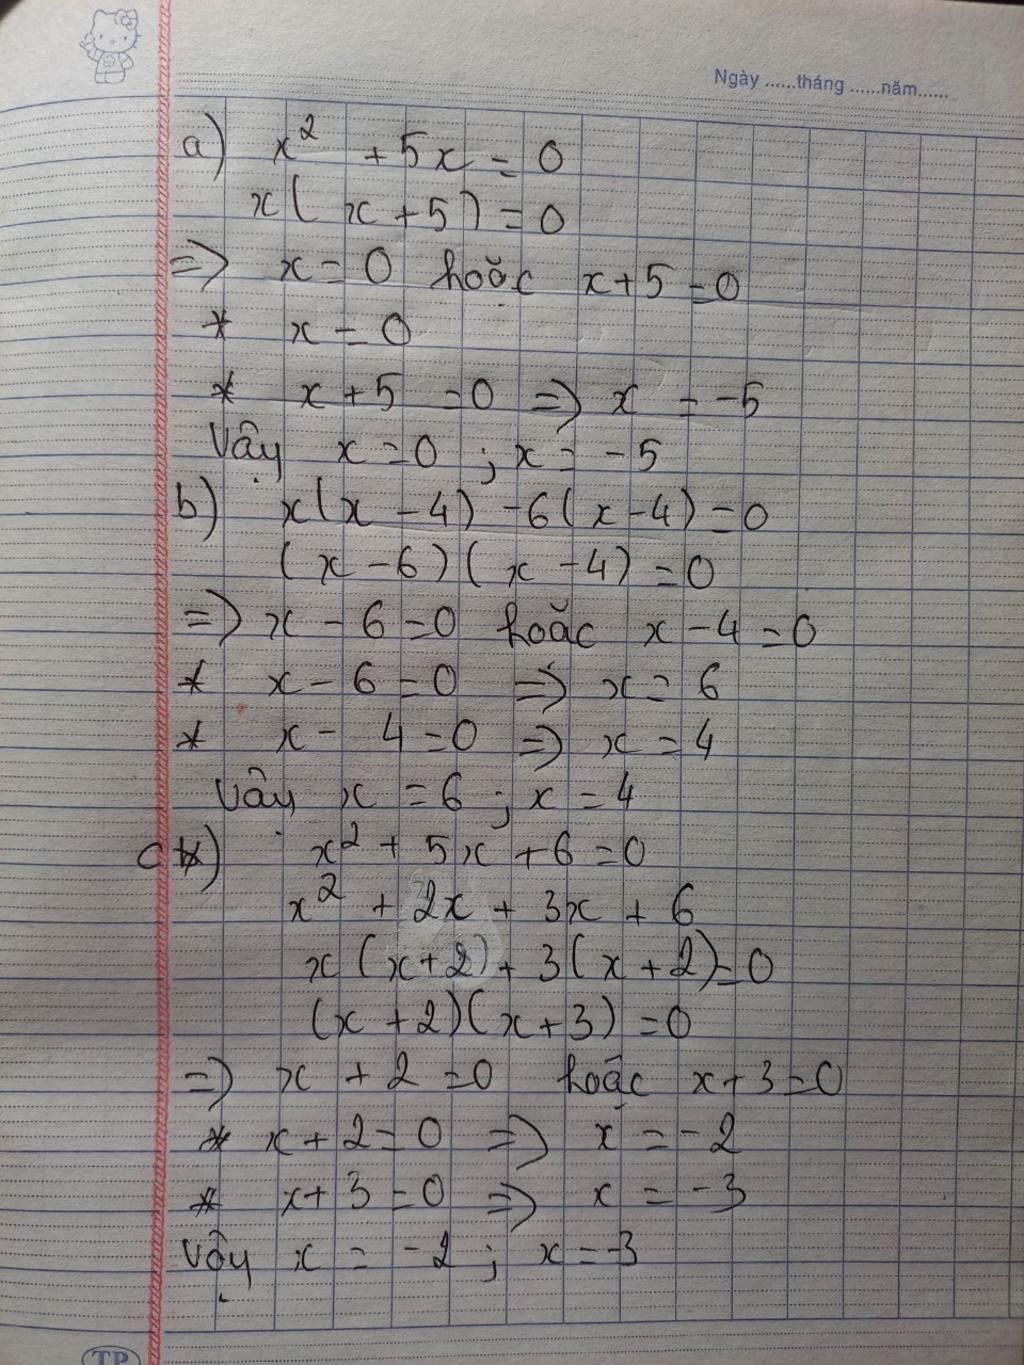 Ngày ......tháng ......năm......
a) x² + 5x = 0
x(x+5) = 0
=> x = 0 hoặc x+5 = 0
* x = 0
* x+5 = 0 => x = -5
Vậy x = 0 ; x = -5
b) x(x-4) -6(x-4) = 0
(x-6)(x-4) = 0
=> x - 6 = 0 hoặc x - 4 = 0
* x - 6 = 0 => x = 6
* x - 4 = 0 => x = 4
Vậy x = 6 ; x = 4
c) x² + 5x + 6 = 0
x² + 2x + 3x + 6
x(x+2) + 3(x+2) = 0
(x+2)(x+3) = 0
=> x + 2 = 0 hoặc x+3 = 0
* x+2 = 0 => x = -2
* x+3 = 0 => x = -3
Vậy x = -2 ; x = -3
TP